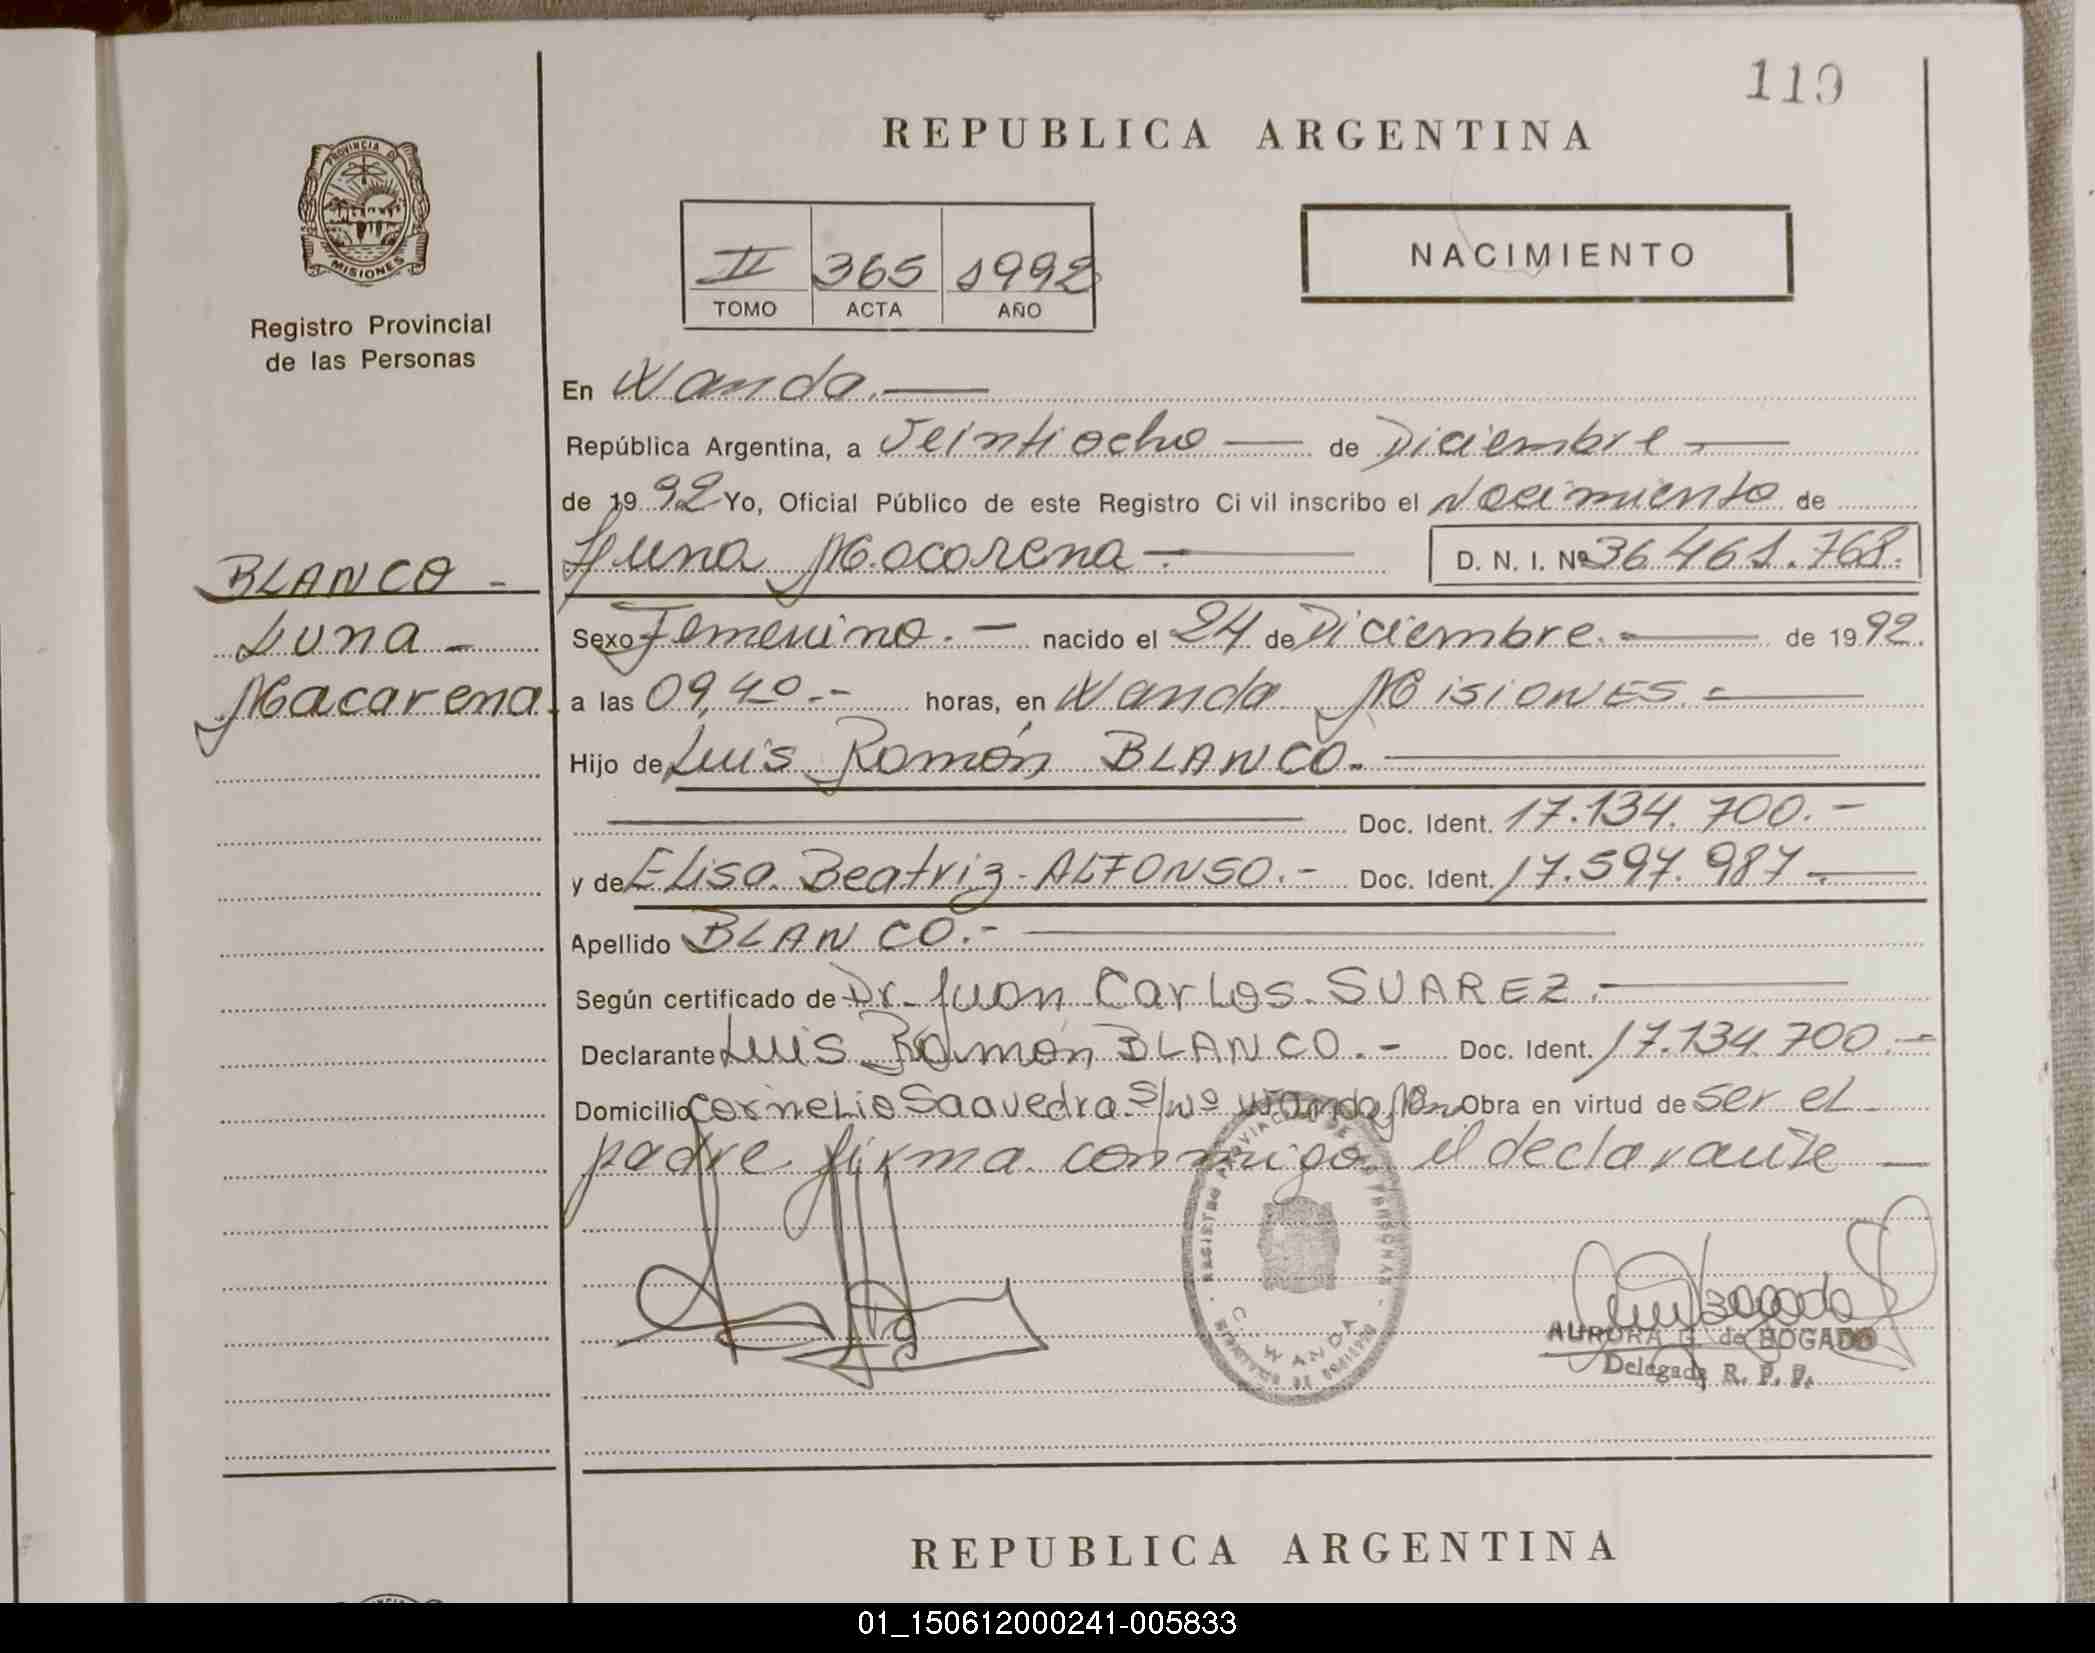 119
REPUBLICA ARGENTINA
PROVINCIA DE
MISIONES
Registro Provincial
de las Personas
II 365 1992
TOMO ACTA AÑO
NACIMIENTO
En Wanda.
República Argentina, a Veintiocho de Diciembre
de 1992 Yo, Oficial Público de este Registro Civil inscribo el Nacimiento de
BLANCO -
Luna -
Macarena.
Luna Macarena D. N. I. Nº 36.461.768.
Sexo Femenino. - nacido el 24 de Diciembre. de 1992.
a las 09,40.- horas, en Wanda Misiones.
Hijo de Luis Ramón BLANCO.
Doc. Ident. 17.134.700.-
y de Elisa Beatriz ALFONSO.- Doc. Ident. 17.597.987.
Apellido BLANCO.-
Según certificado de Dr. Juan Carlos SUAREZ.
Declarante Luis Ramón BLANCO. - Doc. Ident. 17.134.700.-
Domicilio Cornelio Saavedra S/Nº Wanda Obra en virtud de ser el
padre firma conmigo el declarante
REGISTRO PROVINCIAL DE LAS PERSONAS
WANDA
AURORA G. de BOGADO
Delegada R. P. P.
REPUBLICA ARGENTINA
01_150612000241-005833